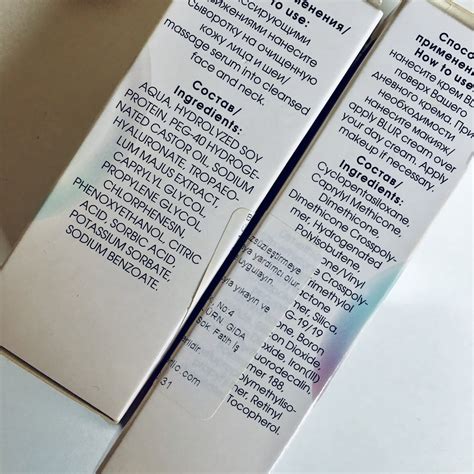 менения/
to use:
ссирующими
движениями нанесите
сыворотку на очищенную
кожу лица и шеи/
massage serum into cleansed
face and neck.
Состав/
Ingredients:
AQUA, HYDROLYZED SOY
PROTEIN, PEG-40 HYDROGE-
NATED CASTOR OIL, SODIUM
HYALURONATE, TROPAEO-
LUM MAJUS EXTRACT,
CAPRYLYL GLYCOL,
PROPYLENE GLYCOL,
CHLORPHENESIN,
PHENOXYETHANOL, CITRIC
ACID, SORBIC ACID,
POTASSIUM SORBATE,
SODIUM BENZOATE.
Спосо
применен
How to use
нанесите крем B
поверх Вашего
дневного крема. При
необходимости
нанесите макияж.
Apply BLUR cream over
your day cream. Apply
makeup if necessary.
Состав/
Ingredients:
Cyclopentasiloxane,
Caprylyl Methicone,
Dimethicone,
Dimethicone Crosspoly-
mer, Hydrogenated
Polyisobutene,
one/Vinyl
Crosspoly-
Dimethylol
ctone
mer, Silica,
G-19/19
one, Boron
Dioxide,
oxide, Iron(III)
fluorodecalin,
mer 188,
olymethylsio-
mer, Retinyl
Tocopherol.
süzleştirmeye
ra yardımcı olur.
uygulayın.
ra yıkayın ve
No:4
URN. GIDA
Sok. Fatih İş
rilidir.
nic.com
31